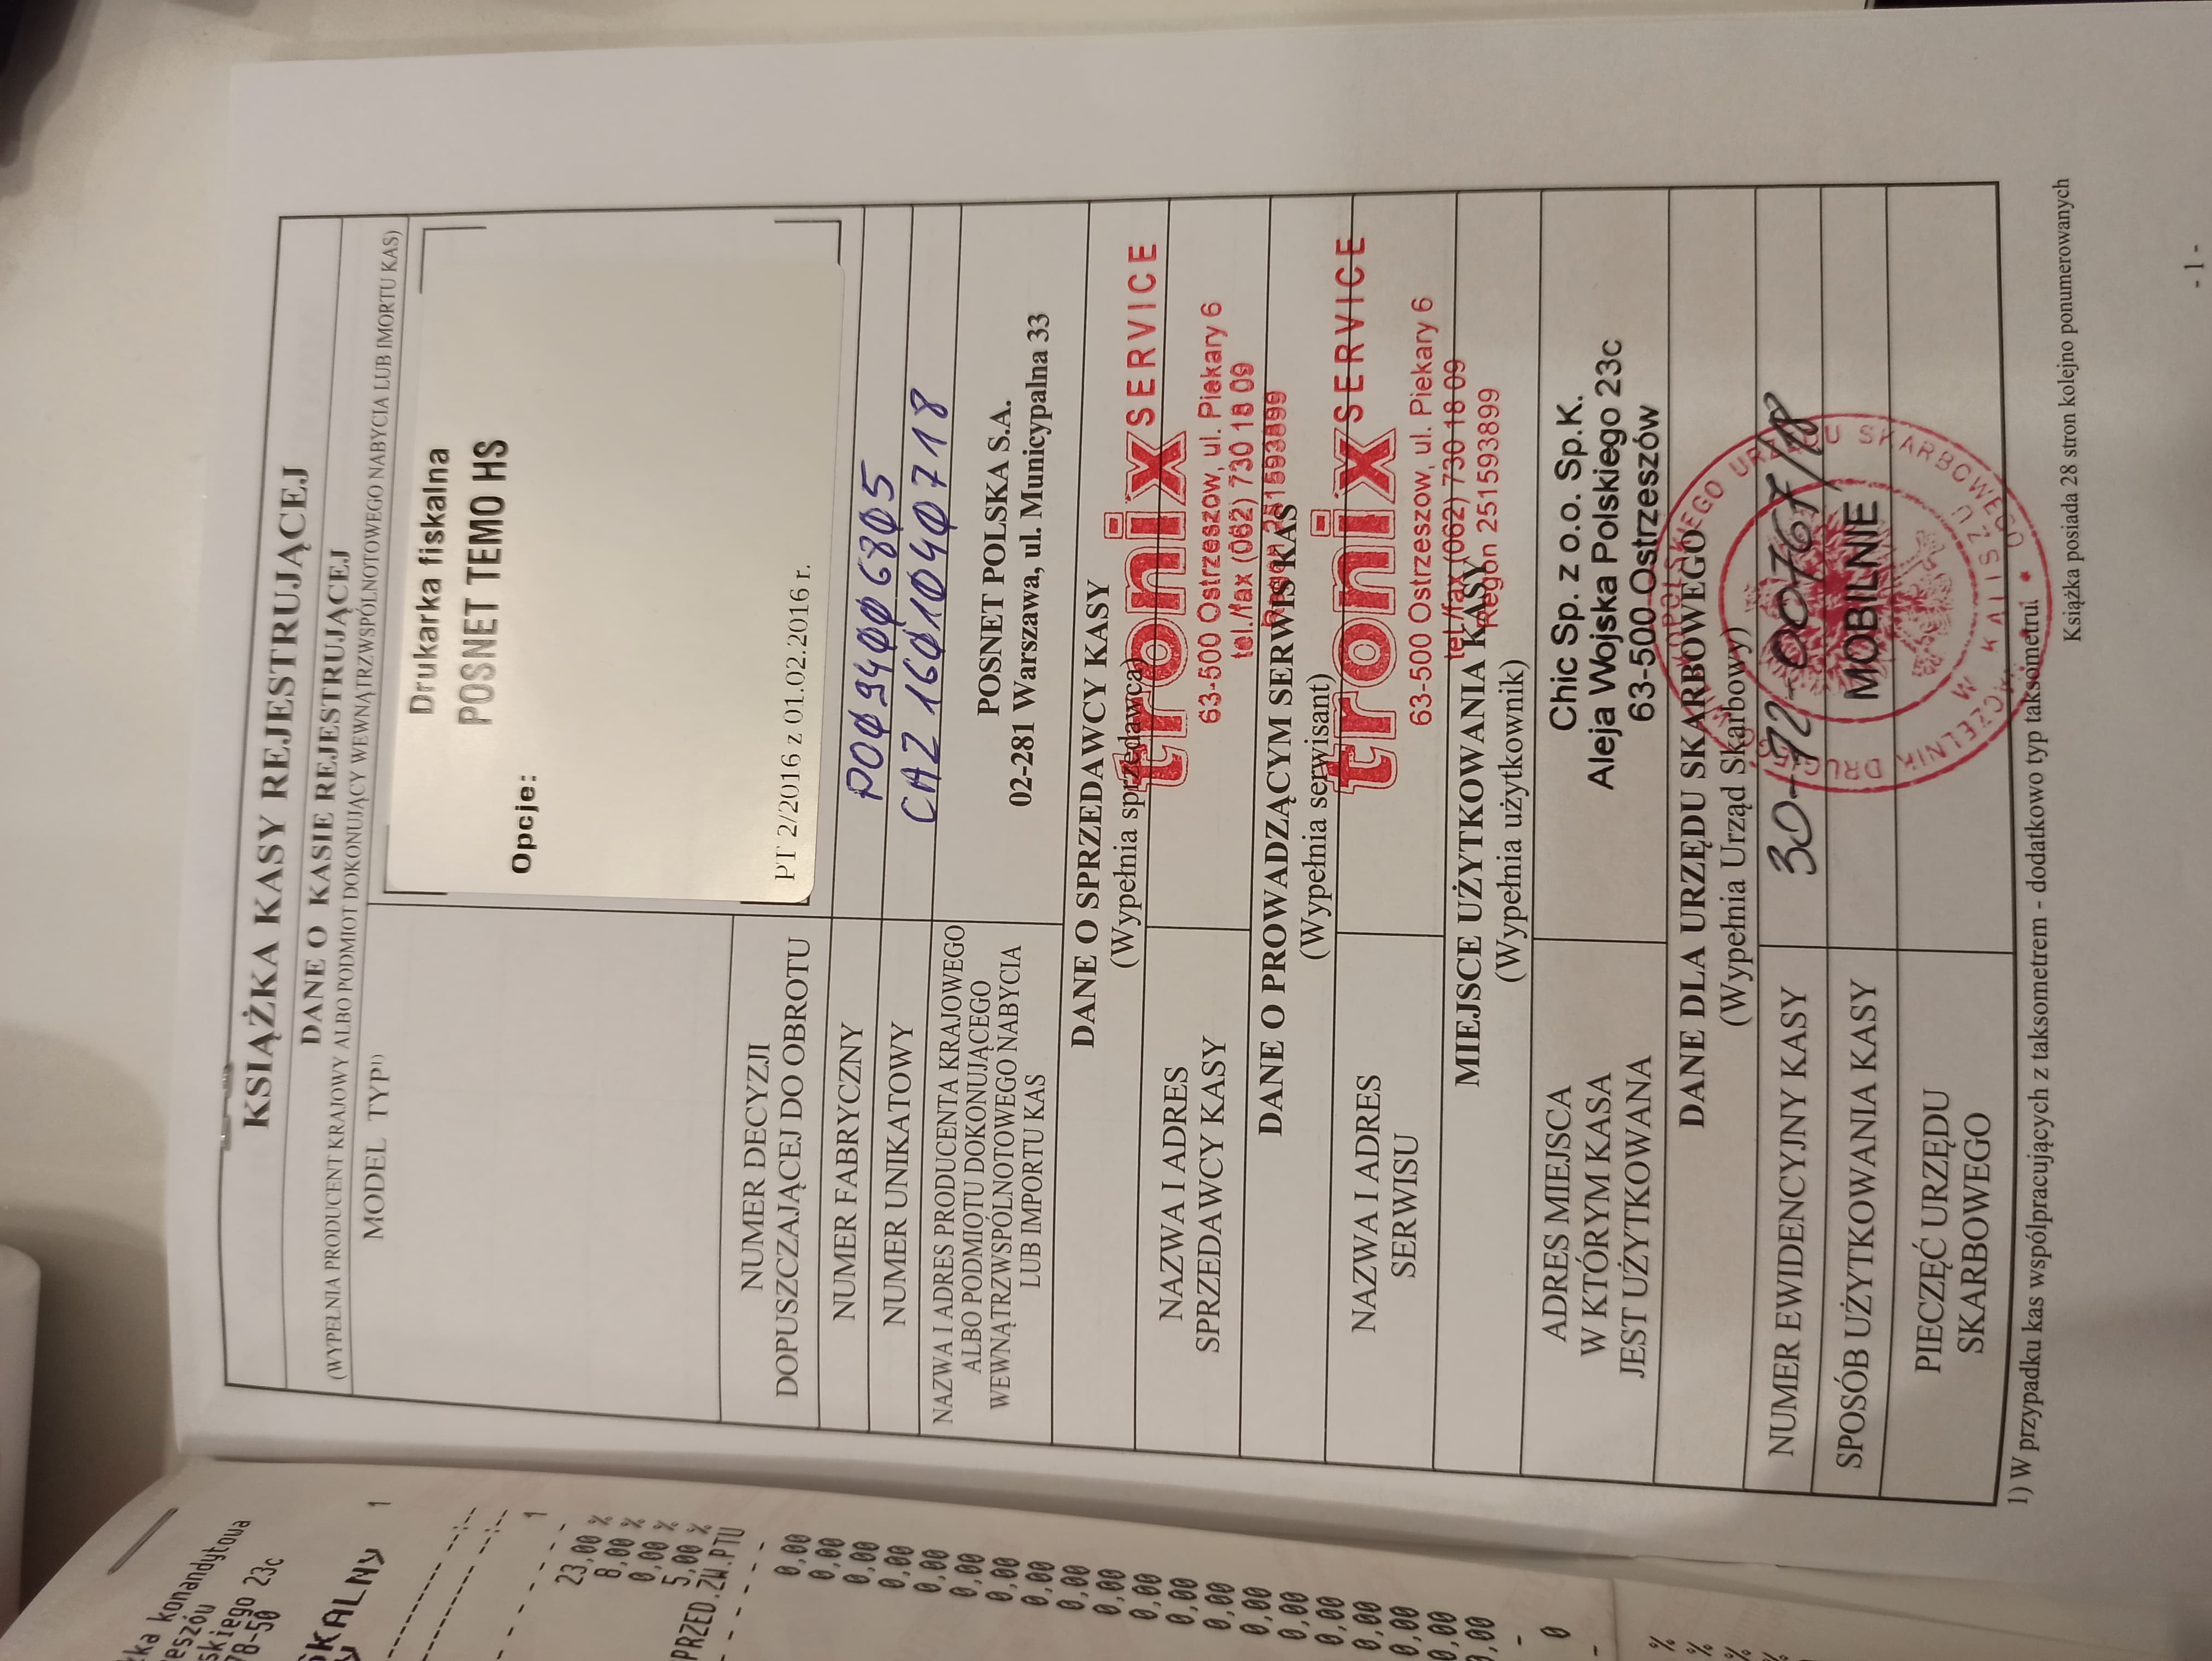 łka komandytowa
eszów
skiego 23c
78-50
SKALNY
1
1
23,00 %
8,00 %
0,00 %
5,00 %
PRZED.ZW.PTU
0,00
0,00
0,00
0,00
0,00
0,00
0,00
0,00
0,00
0,00
0,00
0,00
0,00
0,00
0,00
0,00
0,00
0,00
0,00
0,00
0
%
%
%
KSIĄŻKA KASY REJESTRUJĄCEJ
DANE O KASIE REJESTRUJĄCEJ
(WYPEŁNIA PRODUCENT KRAJOWY ALBO PODMIOT DOKONUJĄCY WEWNĄTRZWSPÓLNOTOWEGO NABYCIA LUB IMORTU KAS)
MODEL TYP¹⁾
Drukarka fiskalna
POSNET TEMO HS
Opcje:
NUMER DECYZJI
DOPUSZCZAJĄCEJ DO OBROTU
PT 2/2016 z 01.02.2016 r.
NUMER FABRYCZNY
P0094006805
NUMER UNIKATOWY
CAZ 1601040718
NAZWA I ADRES PRODUCENTA KRAJOWEGO
ALBO PODMIOTU DOKONUJĄCEGO
WEWNĄTRZWSPÓLNOTOWEGO NABYCIA
LUB IMPORTU KAS
POSNET POLSKA S.A.
02-281 Warszawa, ul. Municypalna 33
DANE O SPRZEDAWCY KASY
(Wypełnia sprzedawca)
NAZWA I ADRES
SPRZEDAWCY KASY
tronix SERVICE
63-500 Ostrzeszow, ul. Piekary 6
tel./fax (062) 730 18 09
Regon 251593899
DANE O PROWADZĄCYM SERWIS KAS
(Wypełnia serwisant)
NAZWA I ADRES
SERWISU
tronix SERVICE
63-500 Ostrzeszow, ul. Piekary 6
tel./fax (062) 730 18 09
Regon 251593899
MIEJSCE UŻYTKOWANIA KASY
(Wypełnia użytkownik)
ADRES MIEJSCA
W KTÓRYM KASA
JEST UŻYTKOWANA
Chic Sp. z o.o. Sp.K.
Aleja Wojska Polskiego 23c
63-500 Ostrzeszów
DANE DLA URZĘDU SKARBOWEGO
(Wypełnia Urząd Skarbowy)
NUMER EWIDENCYJNY KASY
30-72-00767/18
SPOSÓB UŻYTKOWANIA KASY
MOBILNIE
PIECZĘĆ URZĘDU
SKARBOWEGO
NACZELNIK DRUGIEGO WIELKOPOLSKIEGO URZĘDU SKARBOWEGO
W KALISZU
1) W przypadku kas współpracujących z taksometrem - dodatkowo typ taksometru.
Książka posiada 28 stron kolejno ponumerowanych
- 1 -